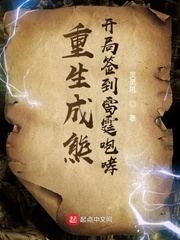 重生成熊
开局签到雷霆咆哮
著
起点中文网